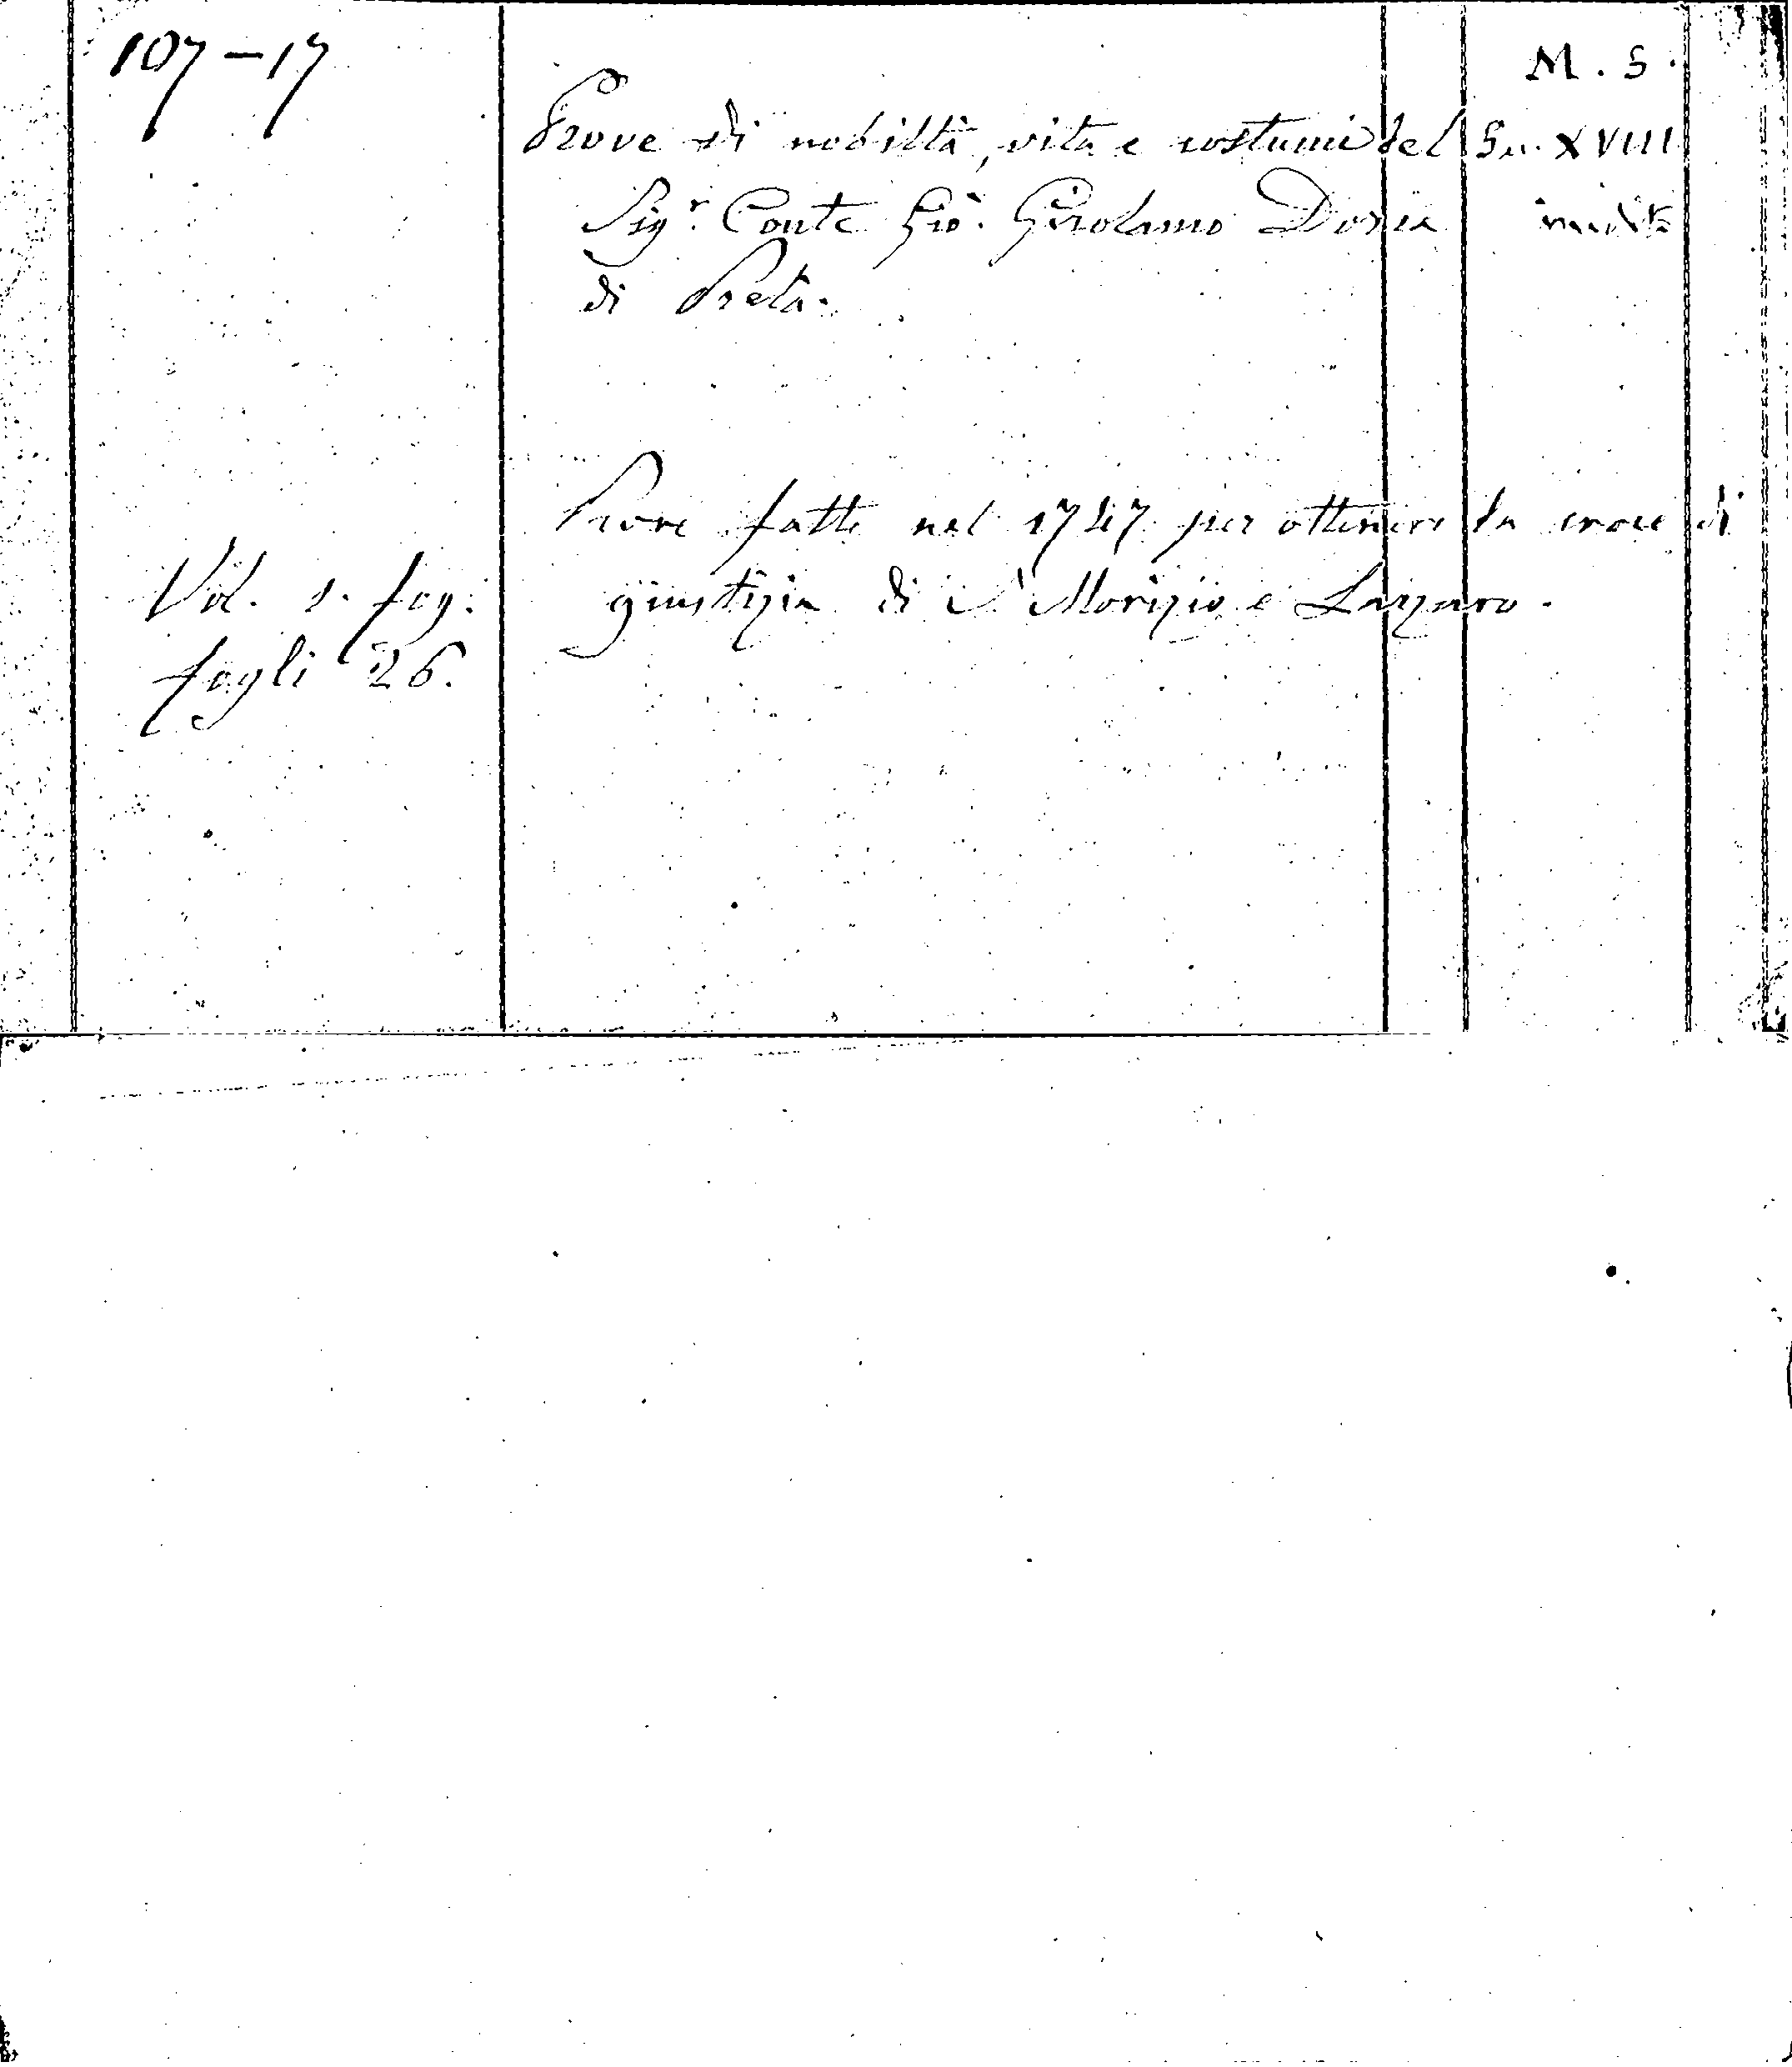 107-17
M. S.
Prove di nobiltà, vita e costumi del
Sec. XVIII
Sigr. Conte Gio. Girolamo Doria
inedito
di Prelà.
Prove fatte nel 1747 per ottenere la croce di
giustizia di S. Morizio e Lazzaro.
Vol. 1. fog.
fogli 26.